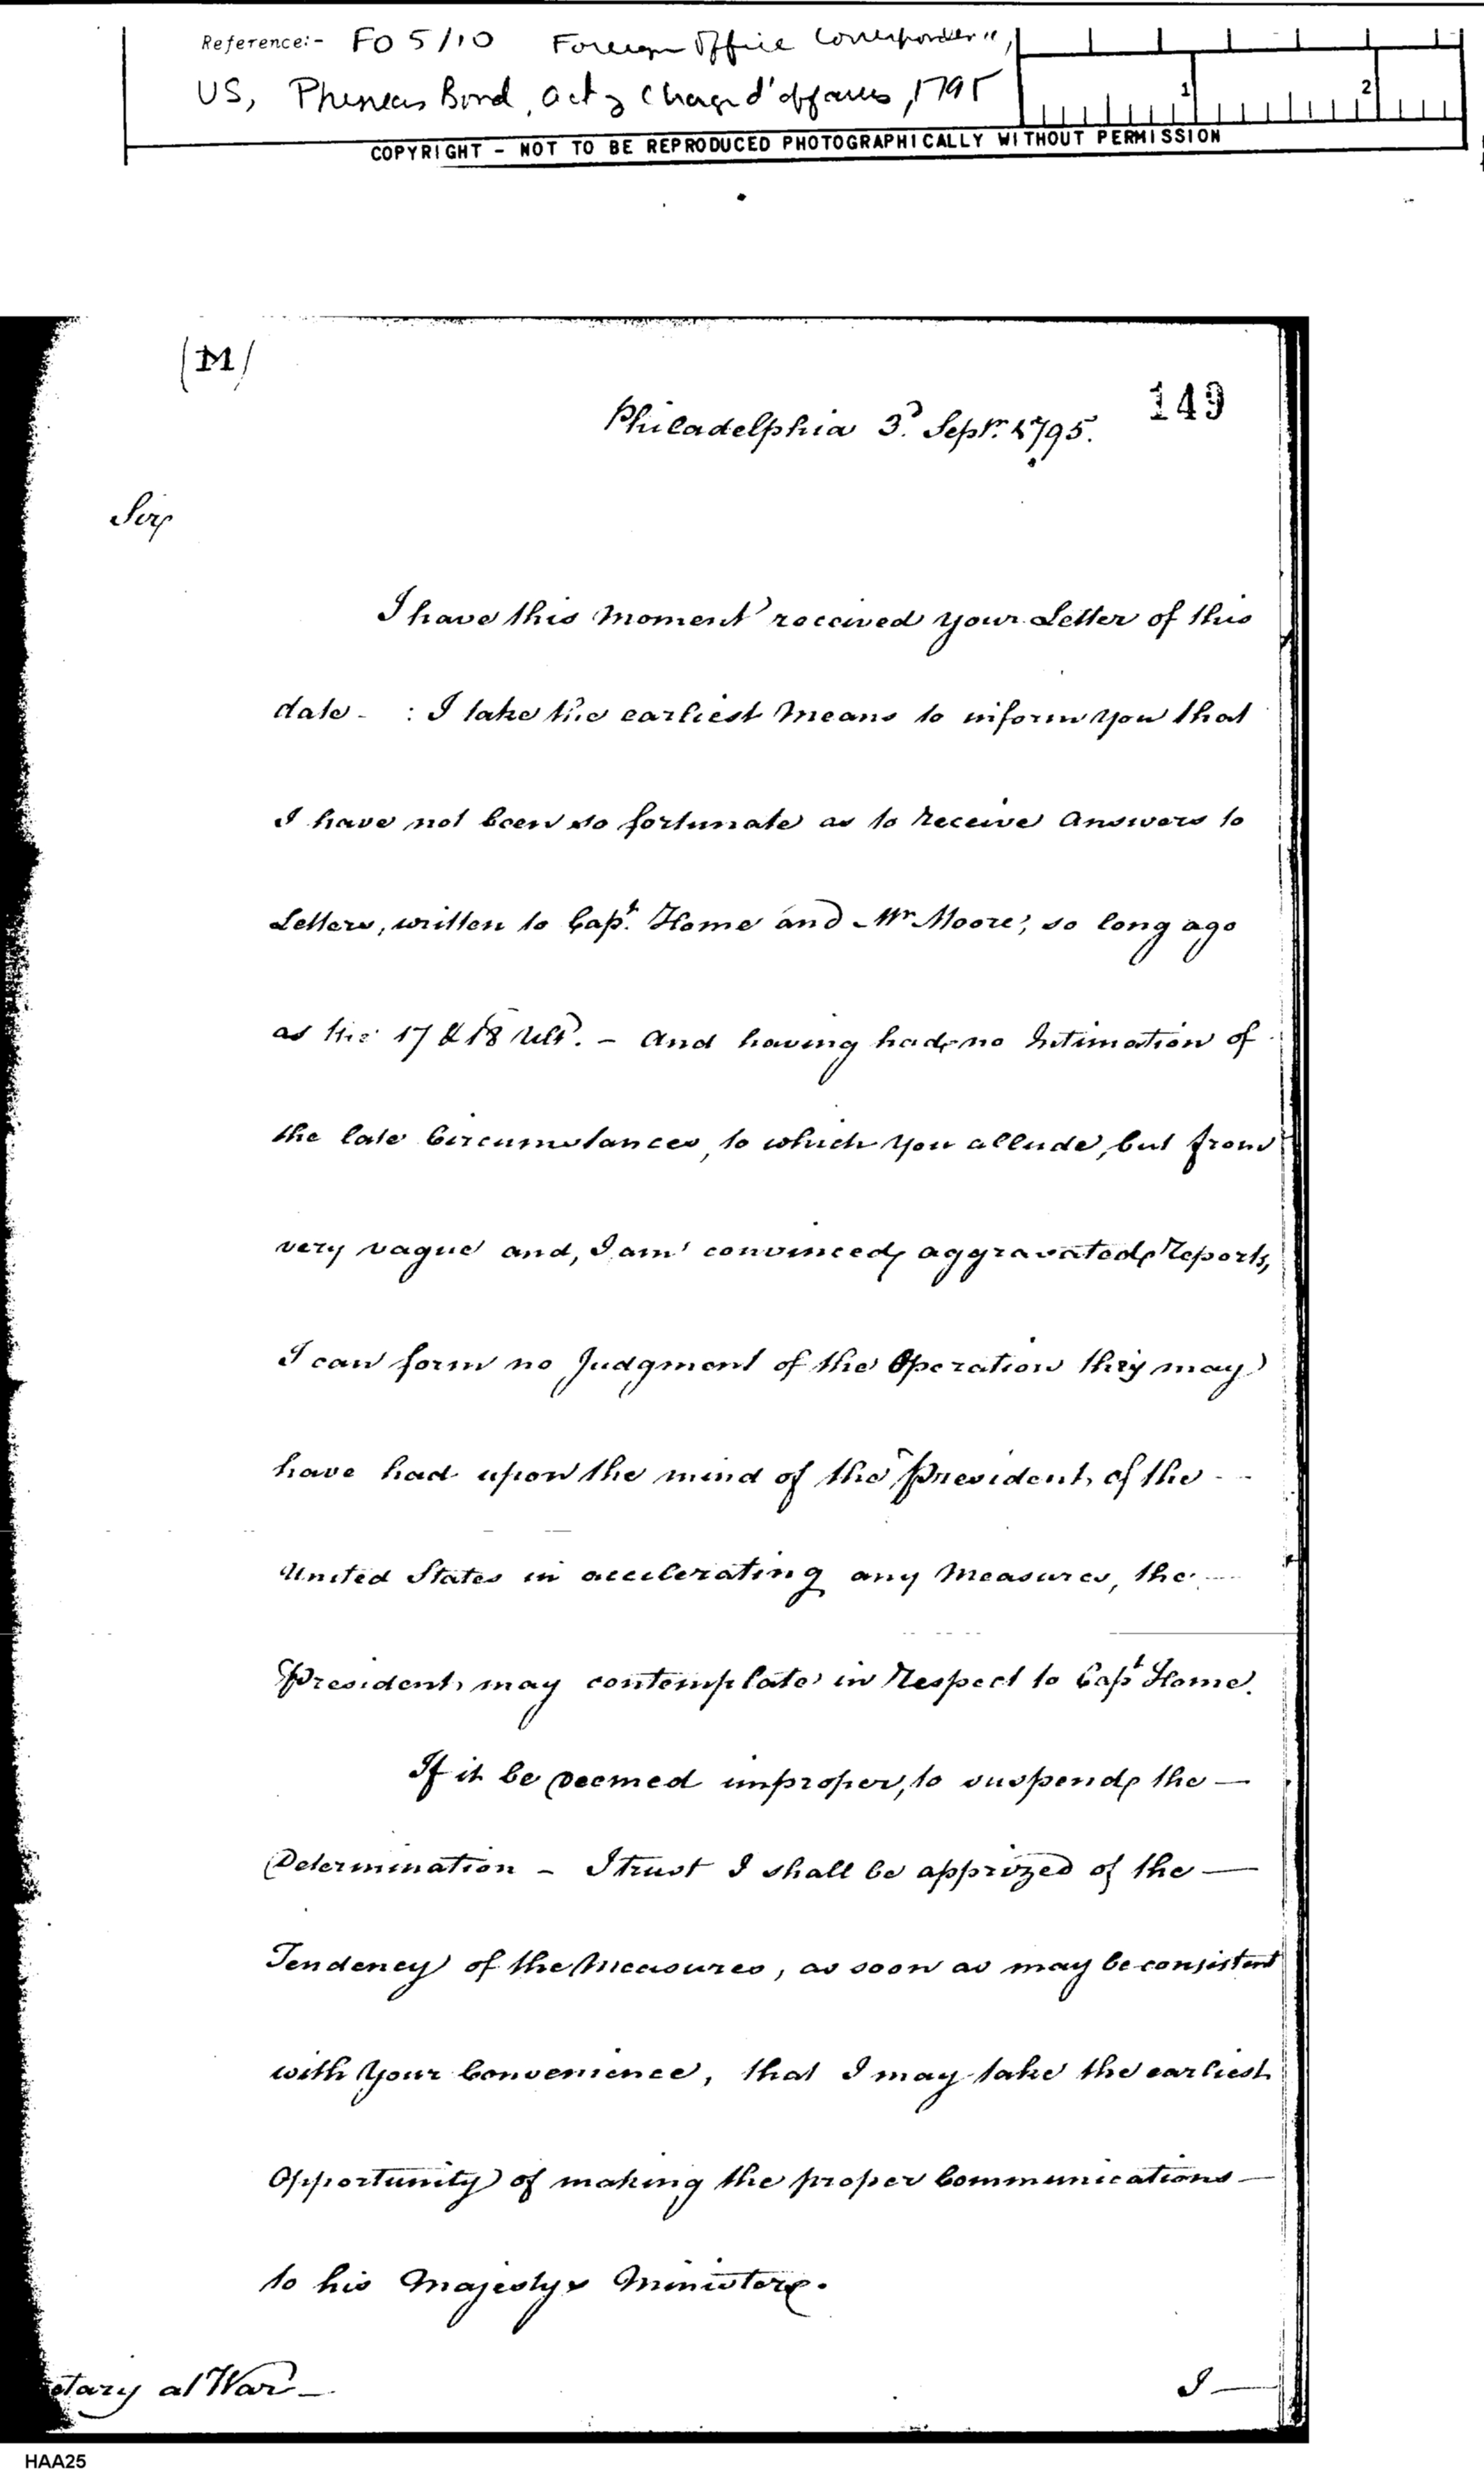 Reference:- FO 5/10 Foreign Office Correspondence,
US, Phineas Bond, acty Chargé d'affaires, 1795
1 2
COPYRIGHT - NOT TO BE REPRODUCED PHOTOGRAPHICALLY WITHOUT PERMISSION
(M)
149
Philadelphia 3d. Sepr. 1795.
Sir
I have this Moment received your Letter of this
date - : I take the earliest Means to inform you that
I have not been so fortunate as to receive Answers to
Letters, written to Capt. Home and Mr Moore, so long ago
as the 17 & 18 Ulto. - And having had no Intimation of
the late Circumstances, to which you allude, but from
very vague and, I am convinced, aggravated Reports,
I can form no Judgment of the Operation they may
have had upon the mind of the President of the - -
United States in accelerating any Measures, the -
President may contemplate in Respect to Capt Home.
If it be Deemed improper, to suspend the —
Determination - I trust I shall be apprized of the —
Tendency of the Measures, as soon as may be consistent
with Your Convenience, that I may take the earliest
Opportunity of making the proper Communications —
to his Majestys Ministers.
etary at War —
I —
HAA25